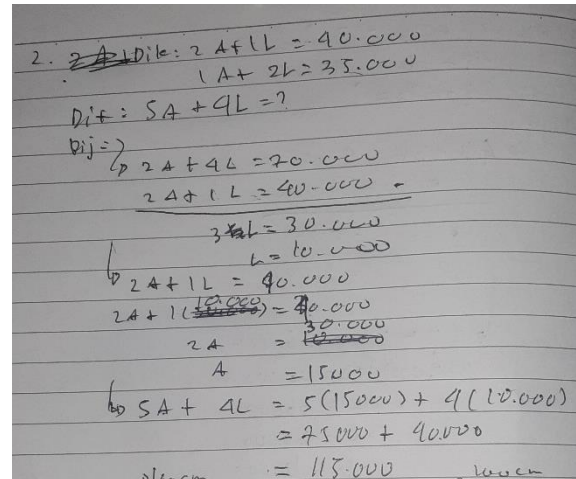 2. Dik: 2A+1L = 40.000
1A+ 2L = 35.000
Dit: 5A + 4L = ?
Dij =>
2A + 4L = 70.000
2A + 1L = 40.000 -
3L = 30.000
L = 10.000
2A + 1L = 40.000
2A + 1(10.000) = 40.000
2A = 30.000
A = 15000
5A + 4L = 5(15000) + 4(10.000)
= 75000 + 40.000
= 115.000